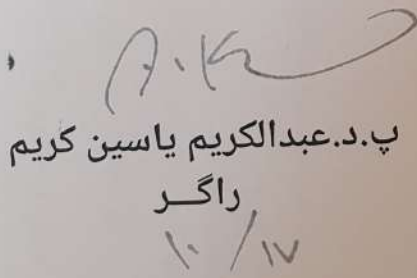 A.K
پ.د.عبدالكريم ياسين كريم
راگــر
١٠/١٧